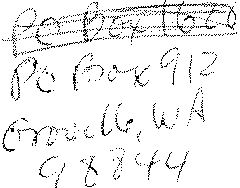 PO Box 1661
PO Box 912
Oroville, WA
98844